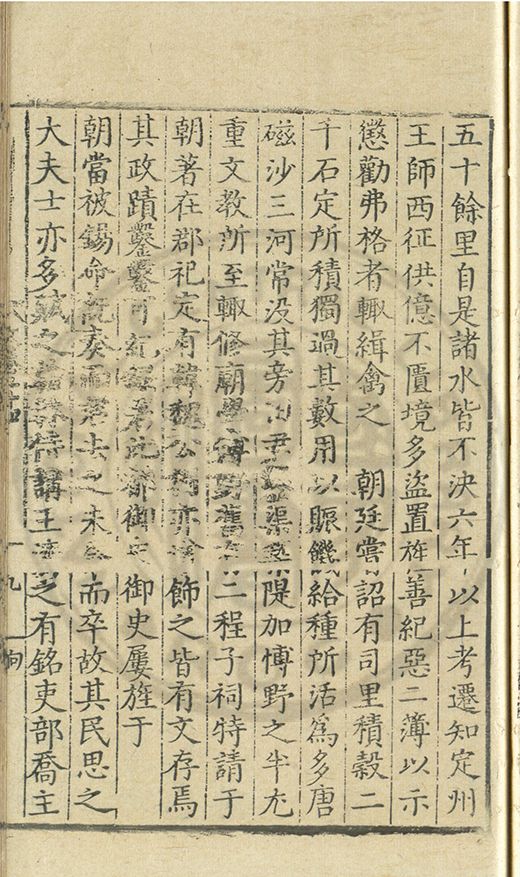 五十餘里自是諸水皆不決六年以上考遷知定州
王師西征供億不匱境多盜置旌善紀惡二薄以示
懲勸弗格者輙緝禽之　朝廷嘗詔有司里積穀二
千石定所積獨過其數用以賑饑給種所活爲多唐
磁沙三河常没其旁堤加博野之半尢
重文教所至輙修廟學博野舊有二程子祠特請于
朝著在郡祀定有韓魏公祠亦飾之皆有文存焉
其政蹟鑿鑿可御史屢旌于
朝當被錫命而卒故其民思之
大夫士亦多侍講王之有銘吏部喬主
十九